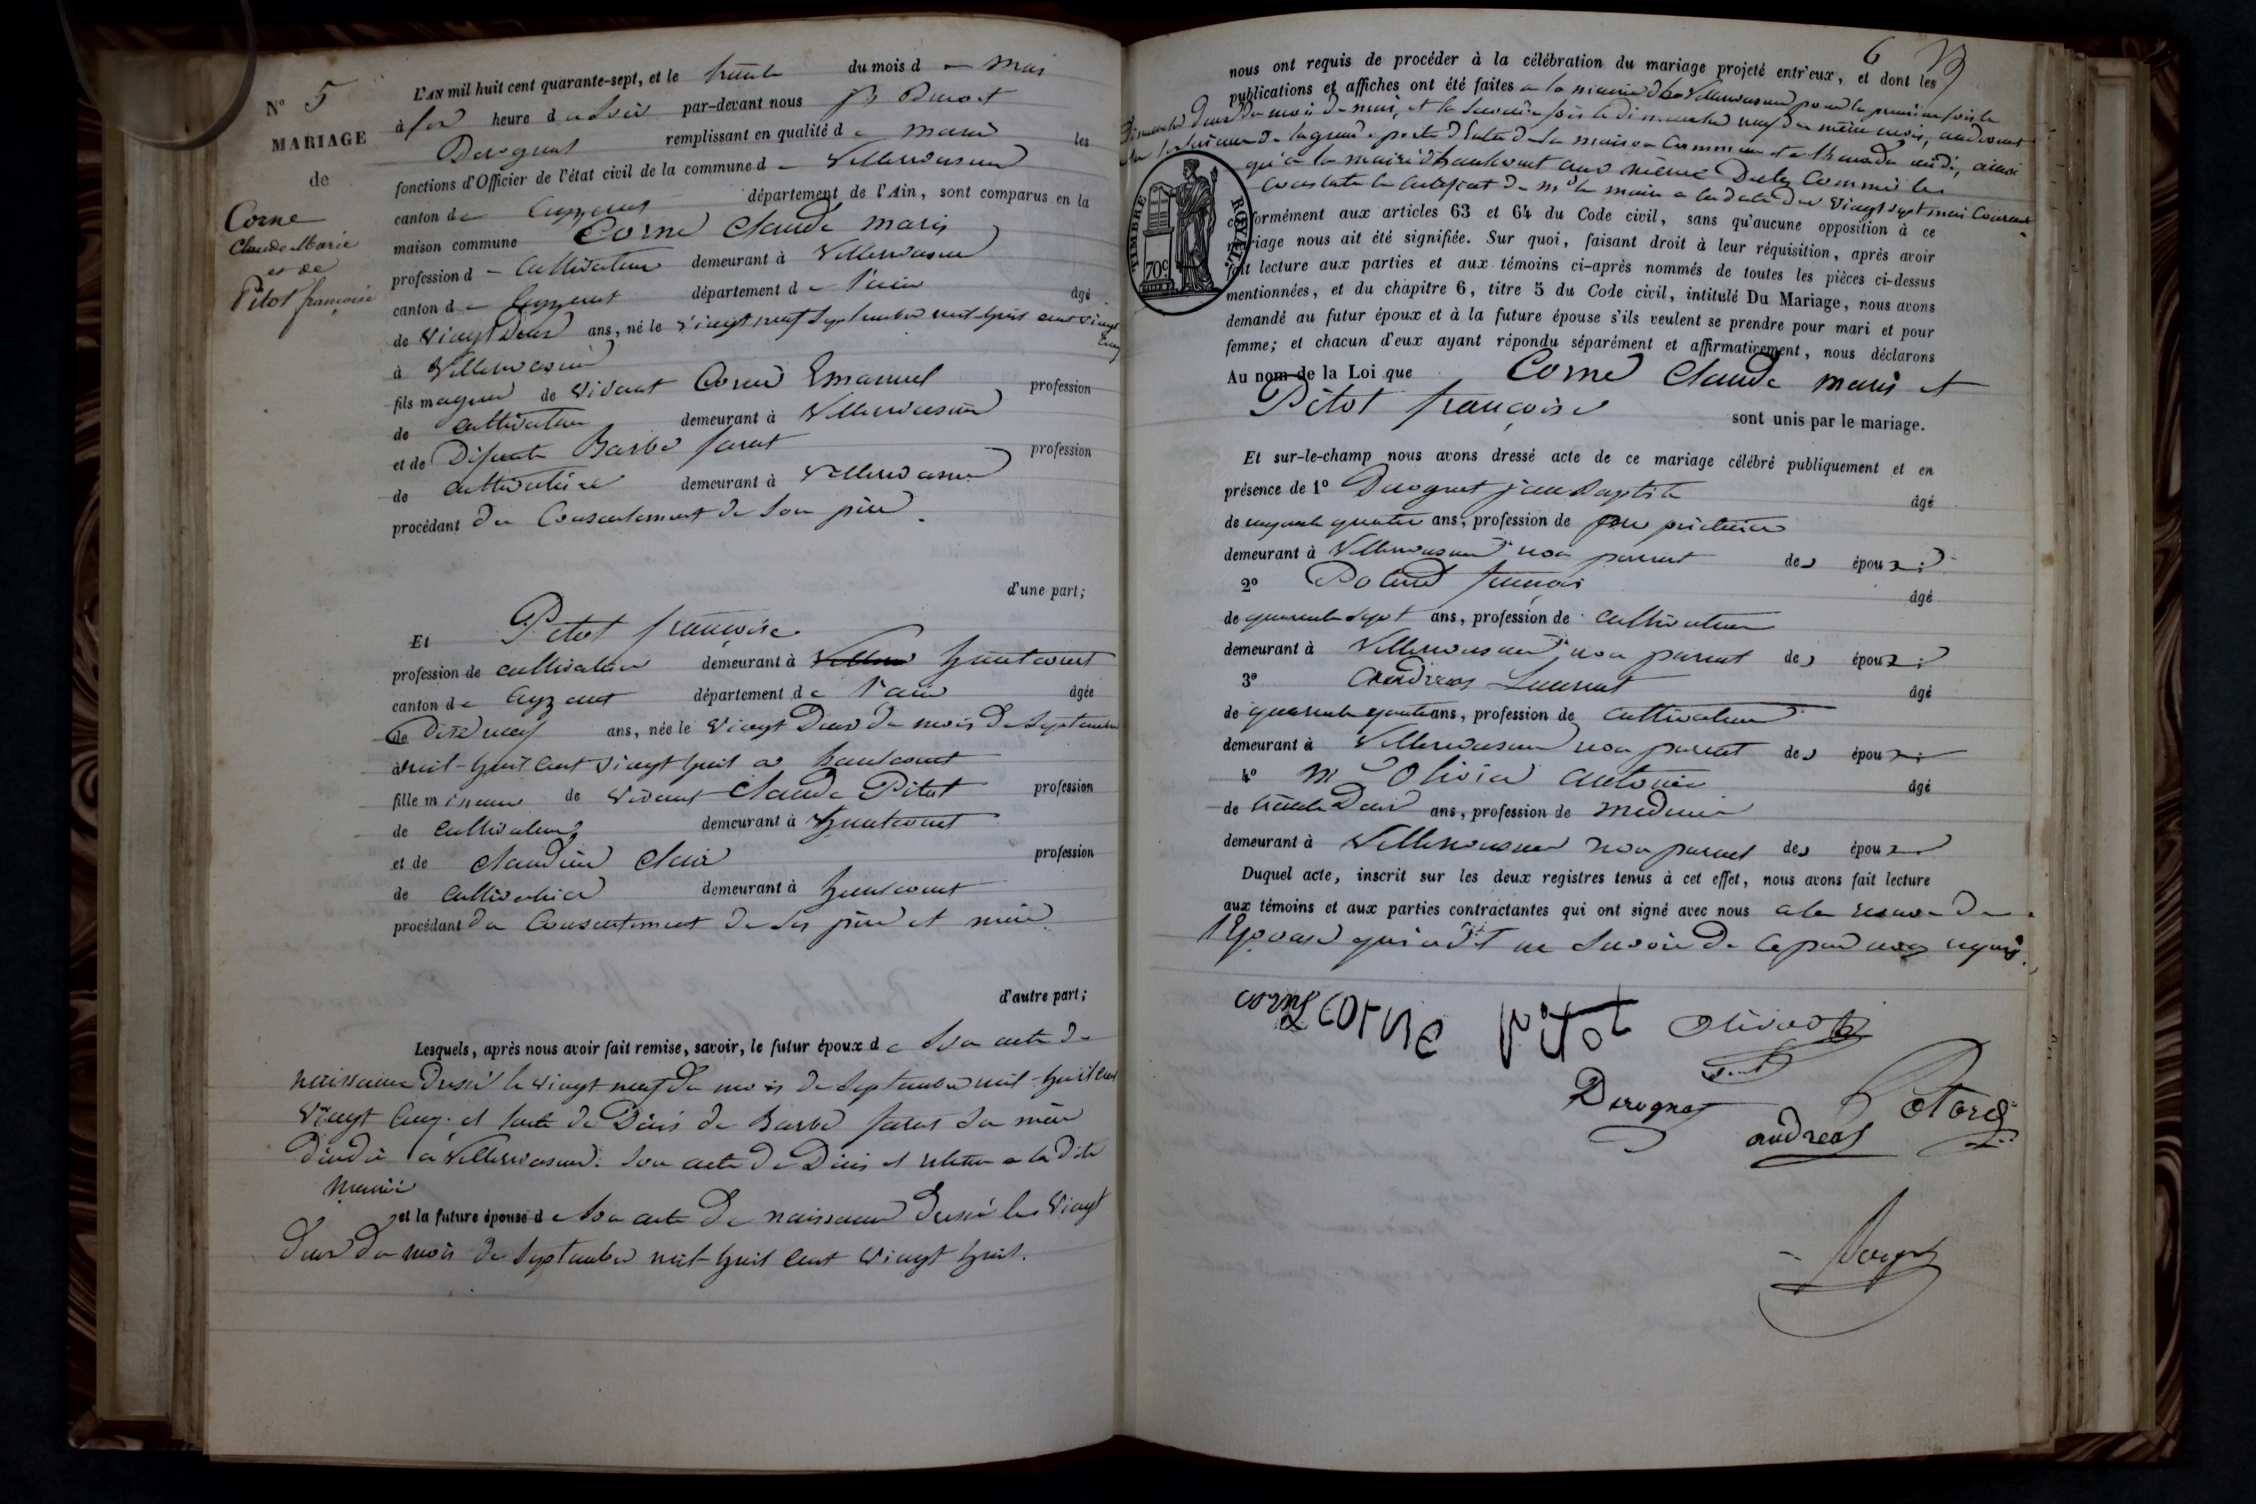 N° 5
MARIAGE
de
Corne
Claude Marie
et de
Pitot françoise
L'AN mil huit cent quarante-sept, et le trente du mois d e mai
à heure d u soir par-devant nous
Derognat remplissant en qualité d e maire les
fonctions d'Officier de l'état civil de la commune d e Villereversure
canton de Ceyzeriat département de l'Ain, sont comparus en la
maison commune Corne Claude marie
profession d e Cultivateur demeurant à Villereversure
canton d e Ceyzeriat département d e l'ain âgé
de Vingt Deux ans, né le vingt neuf Septembre mil huit cent vingt
Cinq
à Villereversure
fils mageur de vivant Corne Emanuel profession
de cultivateur demeurant à Villereversure
et de Défunte Barbe farat profession
de cultivatrice demeurant à Villereversure
procédant du Consentement de Son père.
d'une part;
Et Pitot françoise
profession de cultivatrice demeurant à hautcourt
canton de Ceyzeriat département de l'ain âgée
de Dix neuf ans, née le vingt Deux du mois de Septembre
mil-huit cent vingt huit a hautcourt
fille mineure de vivant Claude Pitot profession
de cultivateur demeurant à hautcourt
et de Claudine Clair profession
de cultivatrice demeurant à hautcourt
procédant du Consentement de Ses père et mère.
d'autre part;
Lesquels, après nous avoir fait remise, savoir, le futur époux d e Son acte de
naissance Dressé le vingt neuf du mois de Septembre mil-huit cent
vingt Cinq. et l'acte de Décès de Barbe farat Sa mère
Décédée à Villereversure. Son acte de Décès et relaté a la Dite
Mairie
et la future épouse d e Son acte de naissance Dressé le Vingt
Deux du mois de Septembre mil-huit cent vingt huit.
6
nous ont requis de procéder à la célébration du mariage projeté entr'eux, et dont les
publications et affiches ont été faites a la mairie de Villereversure pour la première fois le
Dimanche Deux du mois de mai, et la Seconde fois le dimanche neuf du même mois,
porte d'entrée de la maison Commune à l'heure de midi, ainsi
qu'a la mairie d'hautcourt aux mêmes Dates Comme le
constate le Certificat de Mr le maire a la date du vingt Sept mai Courant
TIMBRE ROYAL
70c
conformément aux articles 63 et 64 du Code civil, sans qu'aucune opposition à ce
mariage nous ait été signifiée. Sur quoi, faisant droit à leur réquisition, après avoir
fait lecture aux parties et aux témoins ci-après nommés de toutes les pièces ci-dessus
mentionnées, et du chapitre 6, titre 5 du Code civil, intitulé Du Mariage, nous avons
demandé au futur époux et à la future épouse s'ils veulent se prendre pour mari et pour
femme; et chacun d'eux ayant répondu séparément et affirmativement, nous déclarons
Au nom de la Loi que Corne Claude marie et
Pitot françoise sont unis par le mariage.
Et sur-le-champ nous avons dressé acte de ce mariage célébré publiquement et en
présence de 1° Derognat jean Baptiste âgé
de ans, profession de propriétaire
demeurant à Villereversure non parent des époux
2° françois âgé
de quarante Sept ans, profession de cultivateur
demeurant à Villereversure non parent des époux
3° Andreas Laurent âgé
de quarante quatre ans, profession de cultivateur
demeurant à Villereversure non parent des époux
4° Mr Olivier antoine âgé
de trente Deux ans, profession de medecin
demeurant à Villereversure non parent des époux
Duquel acte, inscrit sur les deux registres tenus à cet effet, nous avons fait lecture
aux témoins et aux parties contractantes qui ont signé avec nous a la reserve de
l'Epouse qui a dit ne Savoir de ce par nous requis.
corne corne Pitot Olivier
Derognat andreas